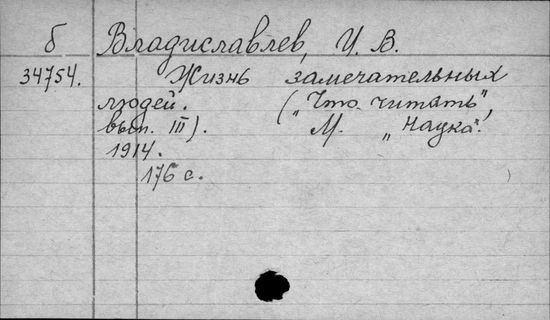 б Владиславлев, И. В.
34754. Жизнь замечательных
людей. („Что читать",
вып. III). М. „Наука".
1914.
176 с.